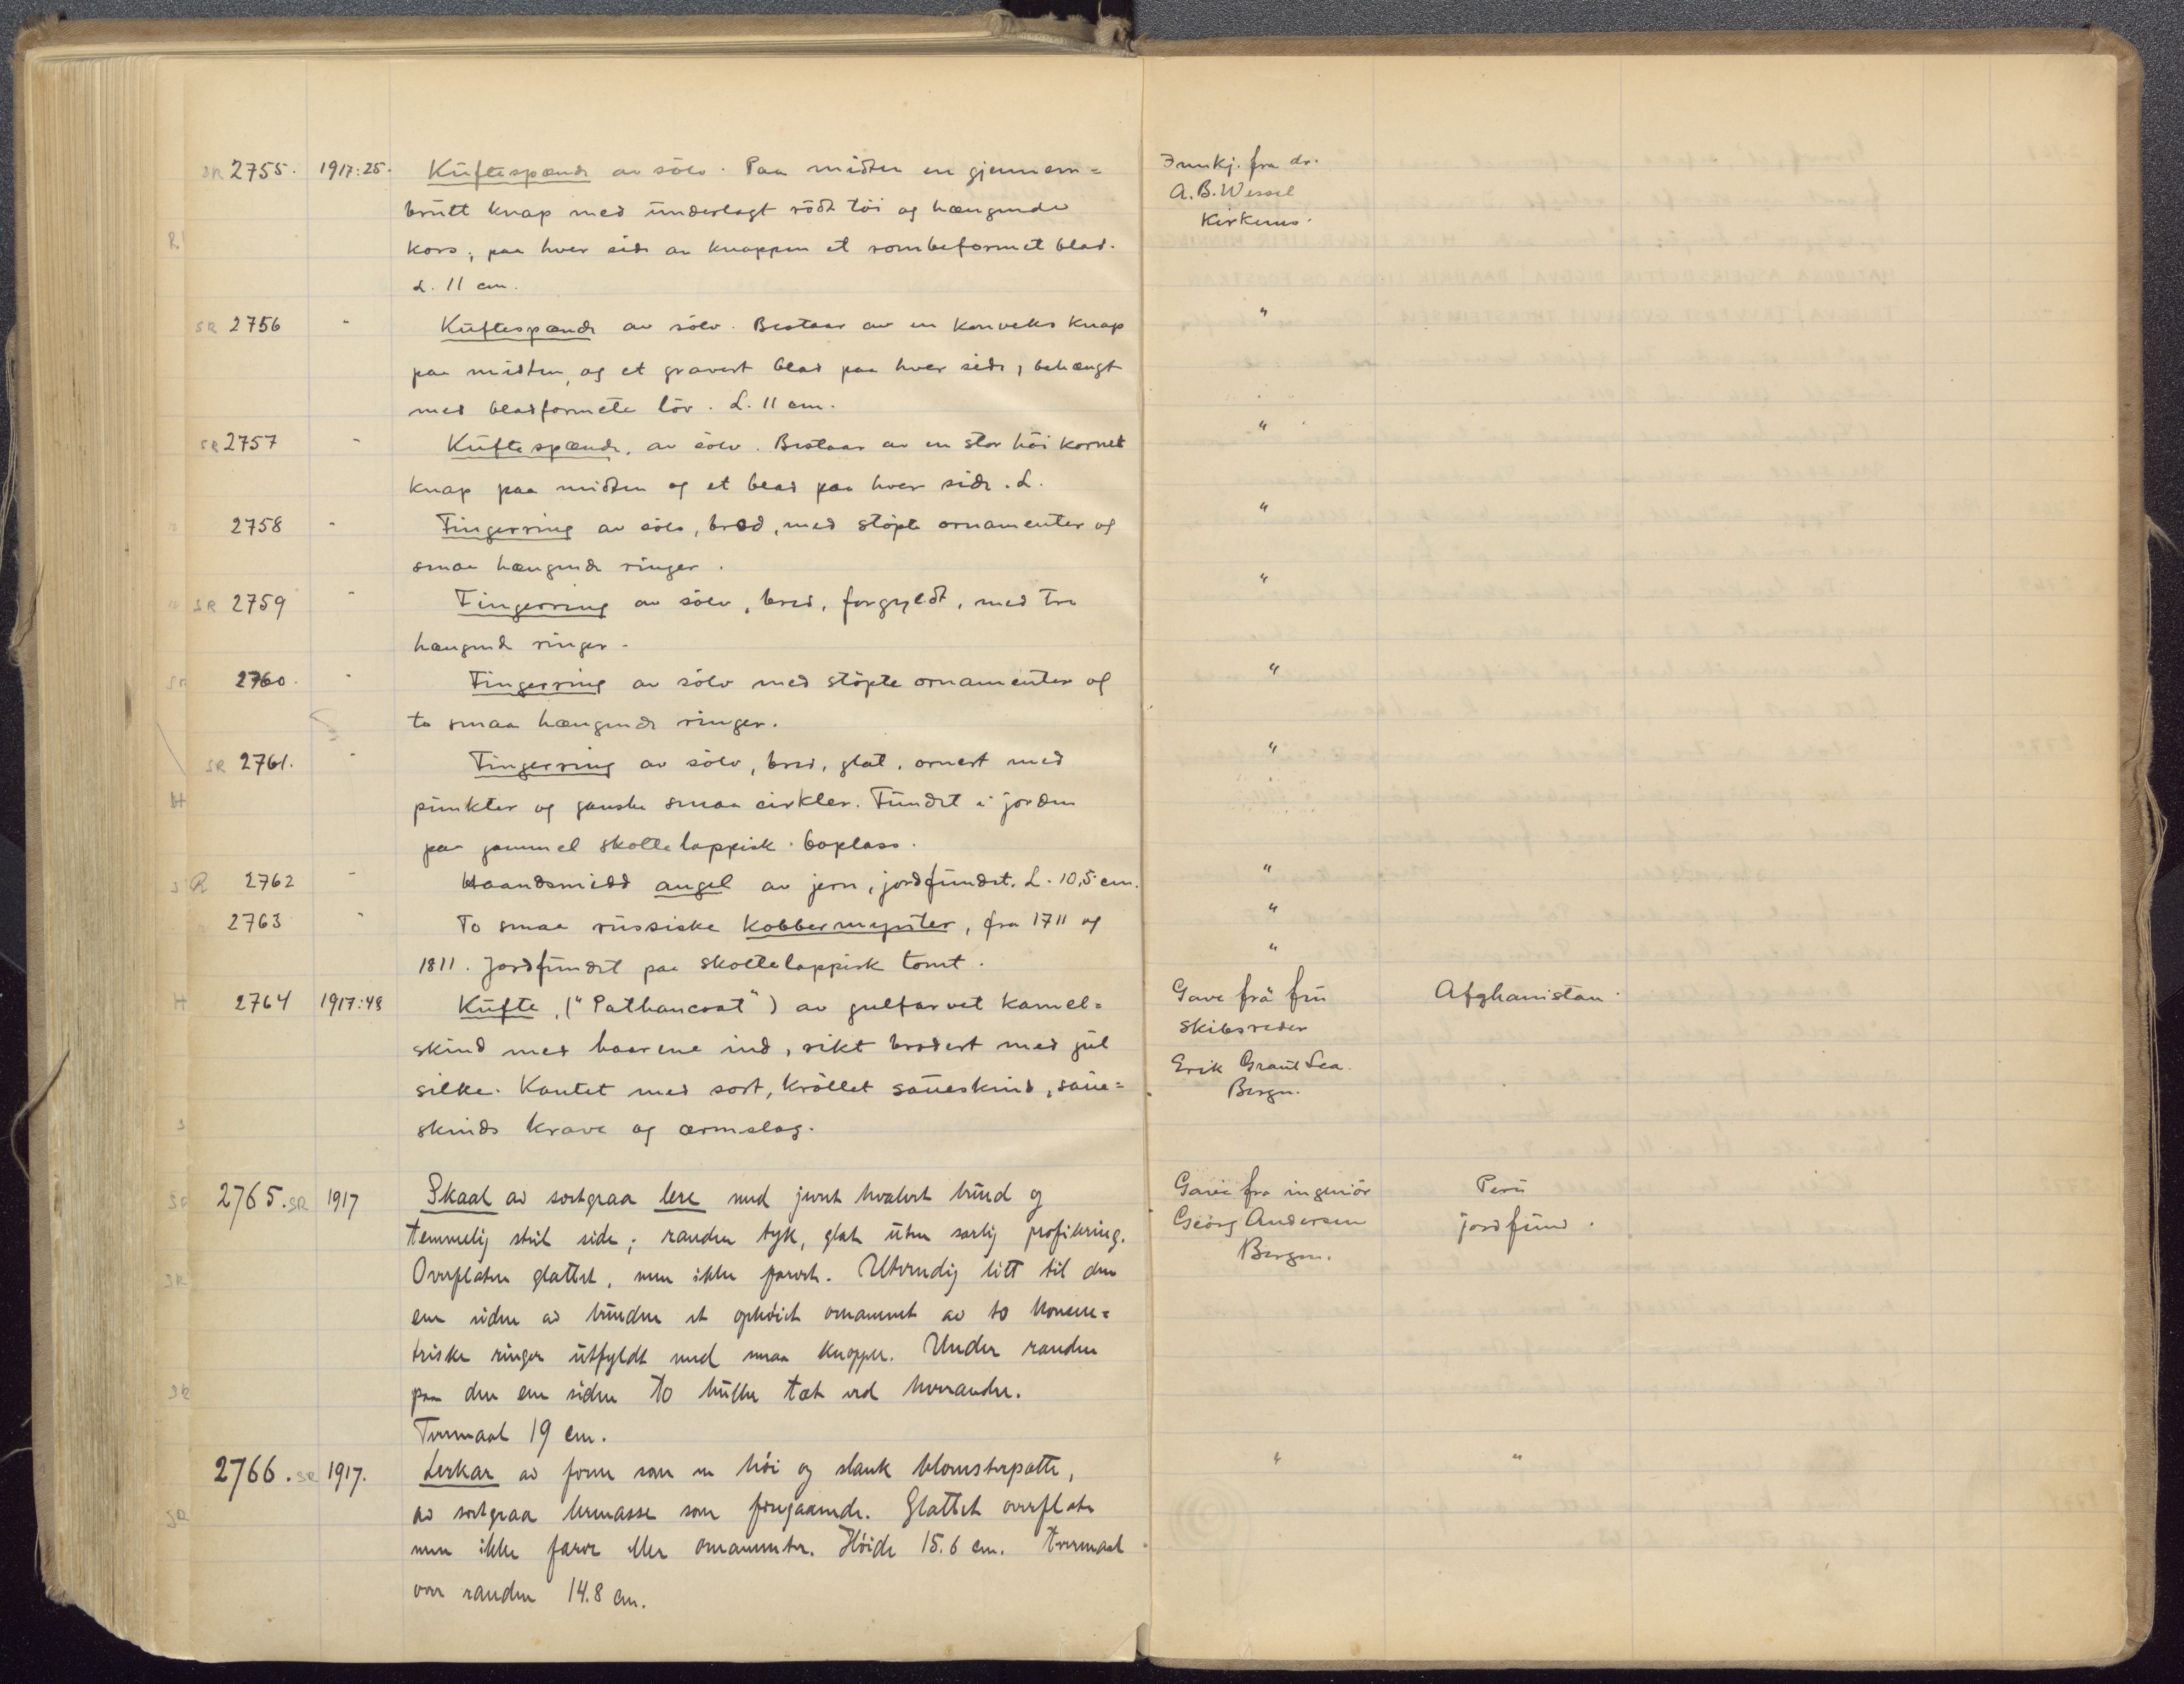 SR 2755. 1917:25. Kuftespænde av sölv. Paa midten en gjennem= Innkj. fra dr.
brutt knap med underlagt rödt töi og hængende A.B. Wessel
kors; paa hver side av knappen et rombeformet blad. Kirkenes.
L. 11 cm.
SR 2756 " Kuftespænde av sölv. Bestaar av en konveks knap "
paa midten, og et gravert blad paa hver side, behængt
med bladformete löv. L. 11 cm.
SR 2757 " Kuftespænde, av sölv. Bestaar av en stor höi kornet "
knap paa midten og et blad paa hver side. L.
2758 " Fingerring av sölv, bred, med stöpte ornamenter og "
smaa hængende ringer.
SR 2759 " Fingerring av sölv, bred, forgyldt, med tre "
hængende ringer.
SR 2760. " Fingerring av sölv med stöpte ornamenter og "
to smaa hængende ringer.
SR 2761. " Fingerring av sölv, bred, glat, ornert med "
punkter og ganske smaa cirkler. Fundet i jorden
paa gammel skoltelappisk boplass.
SR 2762 " Haandsmidd angel av jern, jordfundet. L. 10,5 cm. "
2763 " To smaa russiske kobbermynter, fra 1711 og "
1811. Jordfundet paa skoltelappisk tomt. "
H 2764 1917:48 Kufte, ("Pathancoat") av gulfarvet kamel= Gave frå fru Afghanistan.
skind med haarene ind, rikt brodert med gul skibsreder
silke. Kantet med sort, kröllet saueskind, saue= Erik Grant Lea.
skinds krave og ærmslag. Bergen.
2765. SR 1917 Skaal av sortgraa lere med jevnt hvalvet bund og Gave fra ingeniör Peru
temmelig steil side; randen tyk, glat uten særlig profilering. Georg Andersen jordfund.
Overflaten glattet, men ikke farvet. Utvendig litt til den Bergen.
ene siden av bunden et ophöiet ornament av to koncen=
triske ringer utfyldt med smaa knopper. Under randen
paa den ene siden to huller tæt ved hverandre.
Tvermaal 19 cm.
2766. SR 1917. Lerkar av form som en höi og slank blomsterpotte, " "
av sortgraa lermasse som foregaaende. Glattet overflate
men ikke farve eller ornamenter. Höide 15.6 cm. Tvermaal
over randen 14.8 cm.